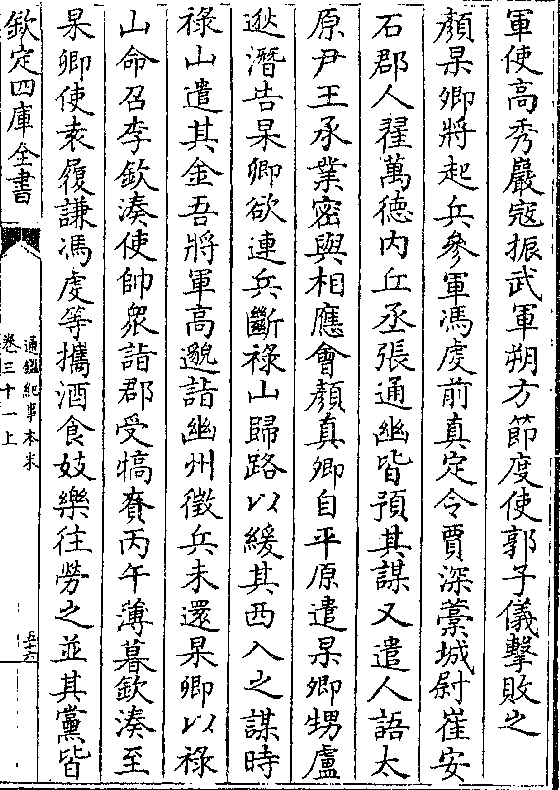 軍使高秀巖寇振武軍朔方節度使郭子儀擊敗之
顏杲卿將起兵參軍馮虔前真定令賈深藁城尉崔安
石郡人翟萬徳内丘丞張通幽皆預其謀又遣人語太
原尹王承業密與相應會顏真卿自平原遣杲卿甥盧
逖潛告杲卿欲連兵斷祿山歸路以緩其西入之謀時
祿山遣其金吾將軍高邈詣幽州徵兵未還杲卿以祿
山命召李欽湊使帥衆詣郡受犒賚丙午薄暮欽湊至
杲卿使袁履謙馮虔等攜酒食妓樂往勞之並其黨皆
欽定四庫全書
通鑑紀事本末
卷三十一上
五十六